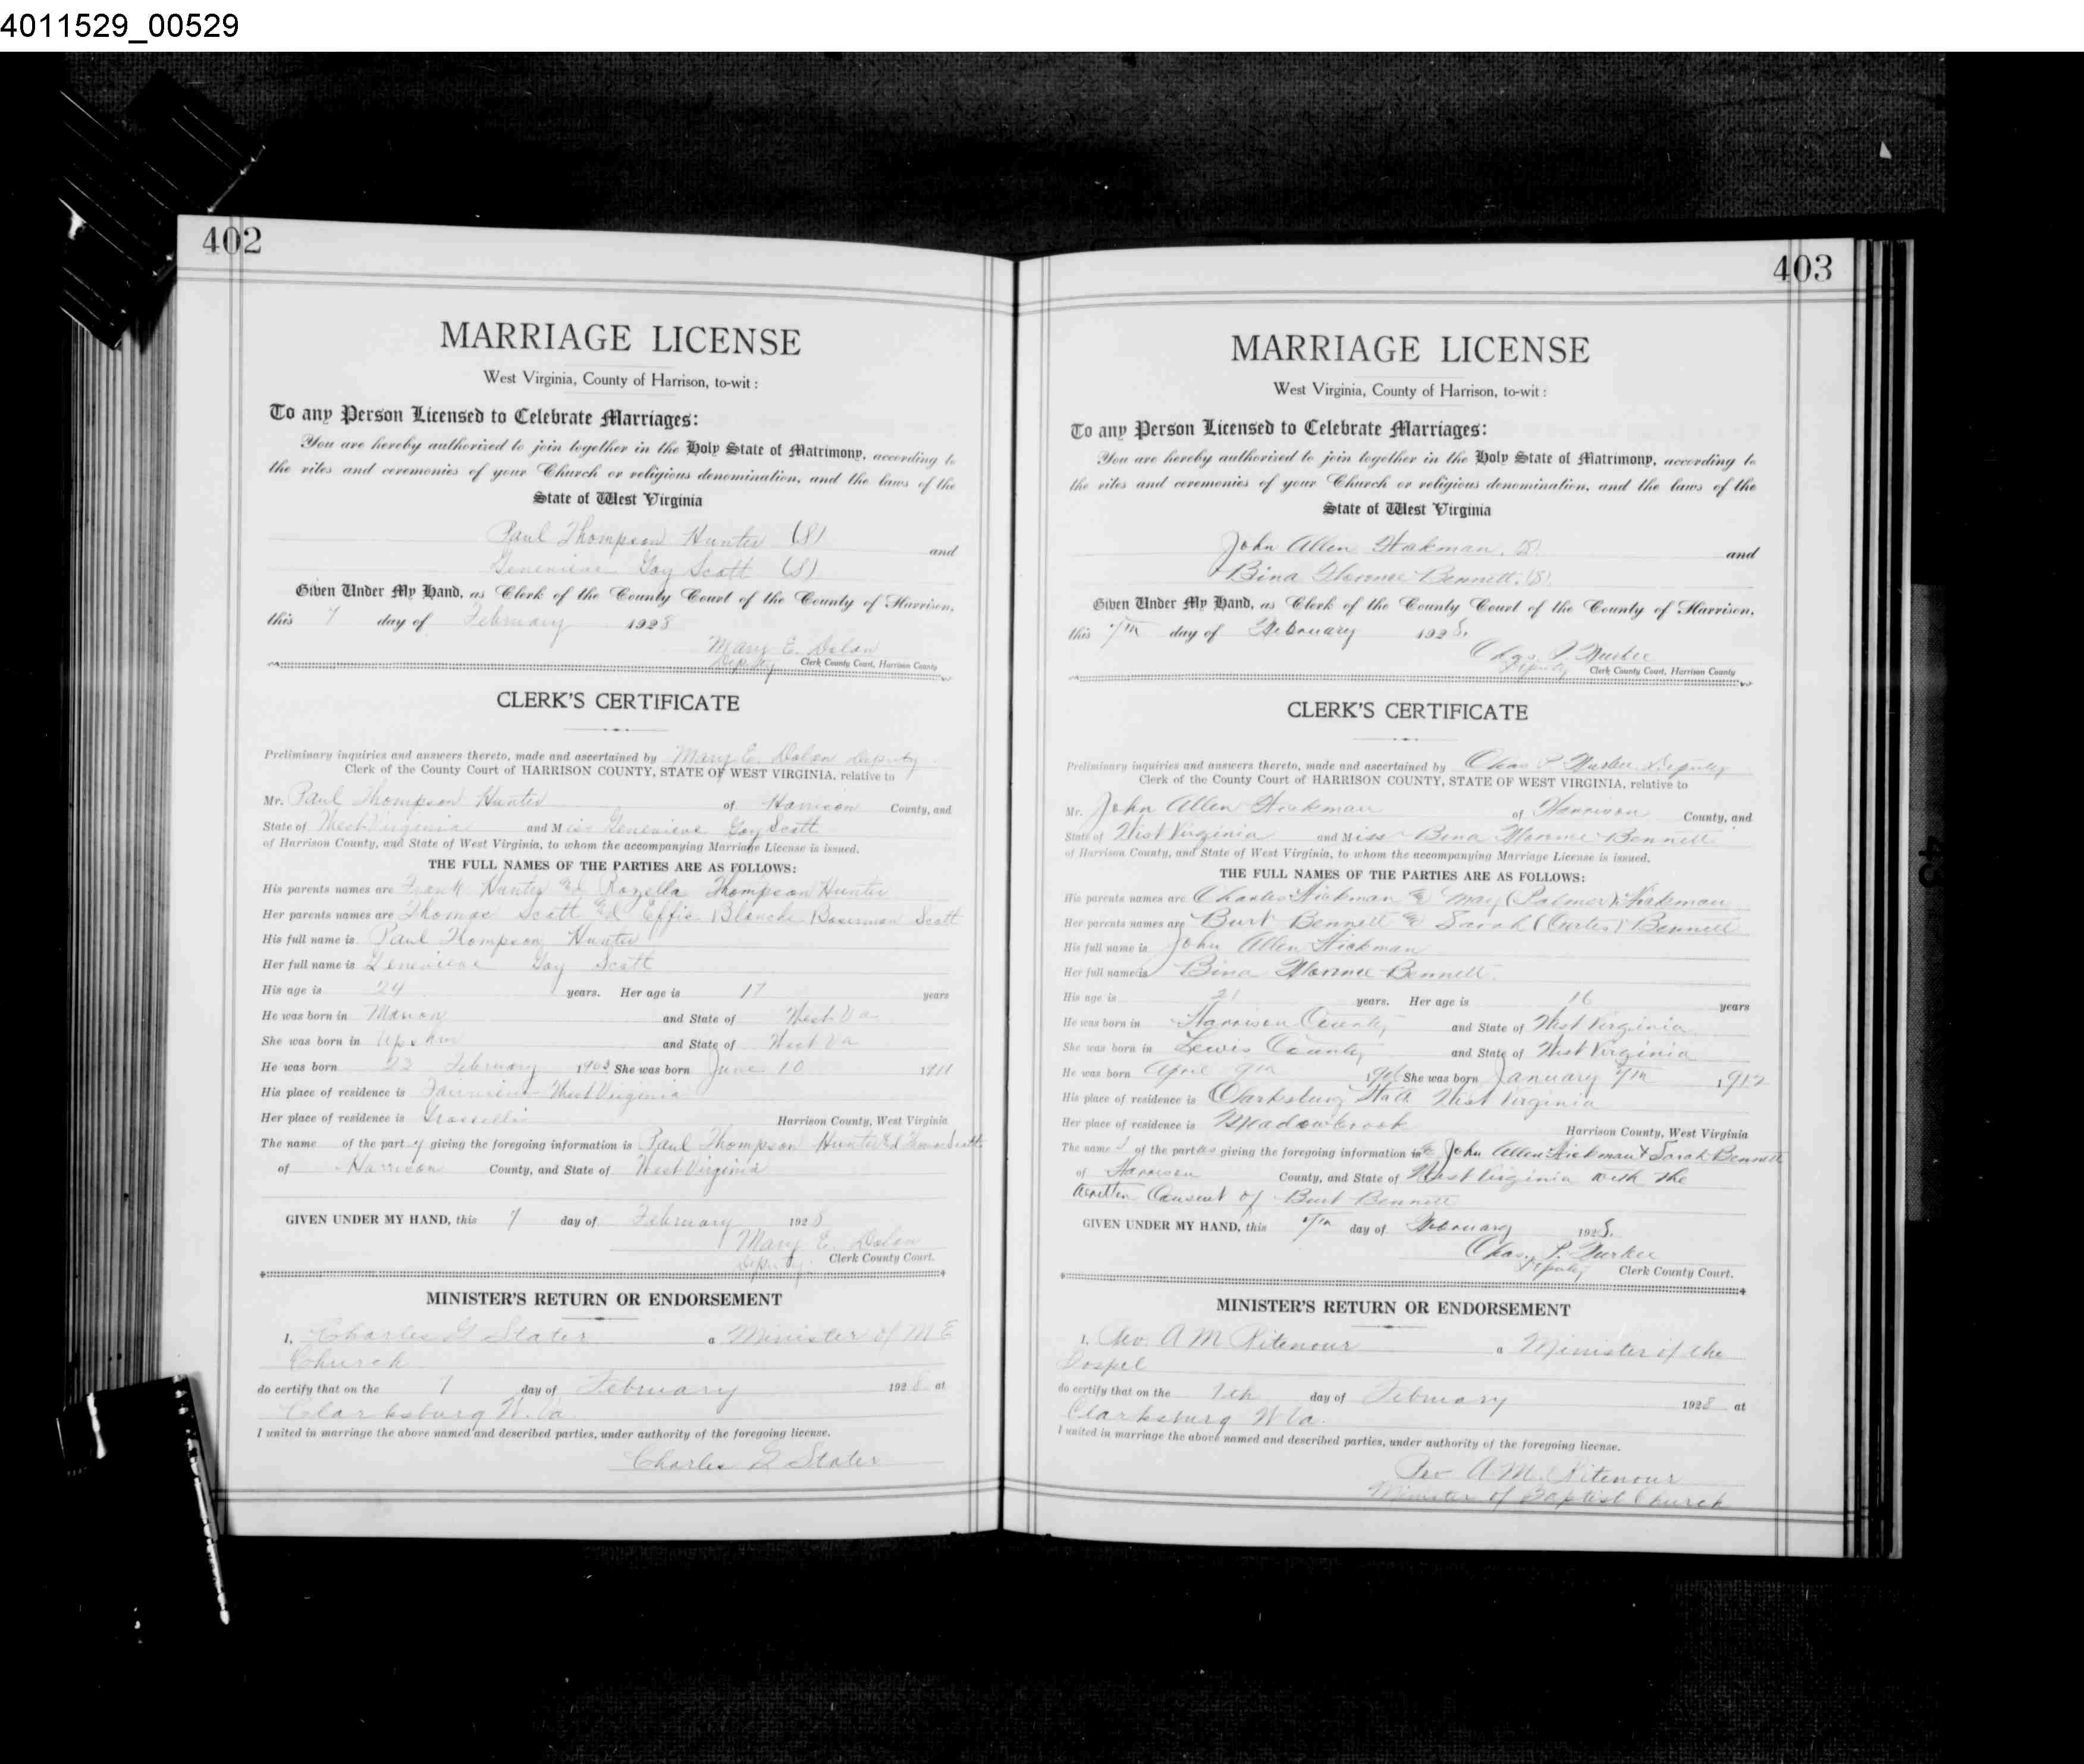 4011529_00529
402
MARRIAGE LICENSE
West Virginia, County of Harrison, to-wit:
To any Person Licensed to Celebrate Marriages:
You are hereby authorized to join together in the Holy State of Matrimony, according to
the rites and ceremonies of your Church or religious denomination, and the laws of the
State of West Virginia
Paul Thompson Hunter (S)
and
Genevieve Gay Scott (S)
Given Under My Hand, as Clerk of the County Court of the County of Harrison,
this 7 day of February 1928
Mary E. Dolan
Deputy Clerk County Court, Harrison County
CLERK'S CERTIFICATE
Preliminary inquiries and answers thereto, made and ascertained by Mary E. Dolan Deputy
Clerk of the County Court of HARRISON COUNTY, STATE OF WEST VIRGINIA, relative to
Mr. Paul Thompson Hunter of Harrison County, and
State of West Virginia and Miss Genevieve Gay Scott
of Harrison County, and State of West Virginia, to whom the accompanying Marriage License is issued.
THE FULL NAMES OF THE PARTIES ARE AS FOLLOWS:
His parents names are Frank Hunter & Rozella Thompson Hunter
Her parents names are Thomas Scott & Effie Blanche Boserman Scott
His full name is Paul Thompson Hunter
Her full name is Genevieve Gay Scott
His age is 24 years. Her age is 17 years
He was born in Marion and State of West Va
She was born in Upshur and State of West Va
He was born 23 February 1903 She was born June 10 1911
His place of residence is Fairview West Virginia
Her place of residence is Grasselli Harrison County, West Virginia
The name of the party giving the foregoing information is Paul Thompson Hunter & Thomas Scott
of Harrison County, and State of West Virginia
GIVEN UNDER MY HAND, this 7 day of February 1928
Mary E. Dolan
Deputy Clerk County Court.
MINISTER'S RETURN OR ENDORSEMENT
I, Charles G Stater a Minister of M E
Church
do certify that on the 7 day of February 1928 at
Clarksburg W. Va.
I united in marriage the above named and described parties, under authority of the foregoing license.
Charles G Stater
403
MARRIAGE LICENSE
West Virginia, County of Harrison, to-wit:
To any Person Licensed to Celebrate Marriages:
You are hereby authorized to join together in the Holy State of Matrimony, according to
the rites and ceremonies of your Church or religious denomination, and the laws of the
State of West Virginia
John Allen Hickman. (S)
and
Bina Florence Bennett. (S)
Given Under My Hand, as Clerk of the County Court of the County of Harrison,
this 7th day of February 1928.
Chas. P.
Deputy Clerk County Court, Harrison County
CLERK'S CERTIFICATE
Preliminary inquiries and answers thereto, made and ascertained by Chas P. Deputy
Clerk of the County Court of HARRISON COUNTY, STATE OF WEST VIRGINIA, relative to
Mr. John Allen Hickman of Harrison County, and
State of West Virginia and Miss Bina Florence Bennett
of Harrison County, and State of West Virginia, to whom the accompanying Marriage License is issued.
THE FULL NAMES OF THE PARTIES ARE AS FOLLOWS:
His parents names are Charles Hickman & May (Palmer) Hickman
Her parents names are Burt Bennett & Sarah (Curtis) Bennett
His full name is John Allen Hickman
Her full name is Bina Florence Bennett.
His age is 21 years. Her age is 16 years
He was born in Harrison County and State of West Virginia
She was born in Lewis County and State of West Virginia
He was born April 9th 1906 She was born January 7th 1912
His place of residence is Clarksburg West Virginia
Her place of residence is Meadowbrook Harrison County, West Virginia
The names of the parties giving the foregoing information is John Allen Hickman & Sarah Bennett
of Harrison County, and State of West Virginia with the
written Consent of Burt Bennett
GIVEN UNDER MY HAND, this 7th day of February 1928.
Chas. P.
Deputy Clerk County Court.
MINISTER'S RETURN OR ENDORSEMENT
I, Rev A M Ritenour a Minister of the
Gospel
do certify that on the 7th day of February 1928 at
Clarksburg W Va.
I united in marriage the above named and described parties, under authority of the foregoing license.
Rev A. M. Ritenour
Minister of Baptist Church